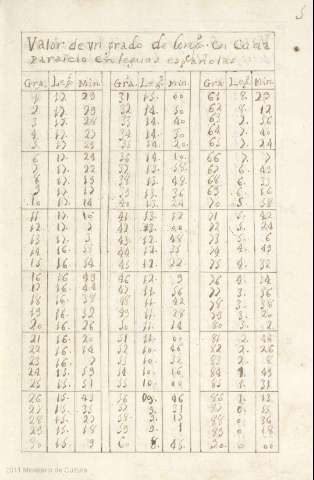 5
Valor de un grado de long. en Cada
Paralelo en leguas españolas
Gra. Leg. Min. Gra. Leg. Min. Gra. Leg. Min.
1 17 29 31 15 00 61 8 29
2 17 29 32 14 50 62 8 12
3 17 28 33 14 40 63 7 56
4 17 27 34 14 30 64 7 40
5 17 25 35 14 20 65 7 24
6 17 24 36 14 10 66 7 7
7 17 22 37 13 58 67 6 49
8 17 19 38 13 48 68 6 33
9 17 17 39 13 36 69 6 16
10 17 14 40 13 24 70 5 58
11 17 10 41 13 12 71 5 42
12 17 7 42 13 00 72 5 24
13 17 3 43 12 48 73 5 6
15 16 54 45 12 22 75 4 32
16 16 49 46 12 9 76 4 14
17 16 44 47 11 56 77 3 56
18 16 38 48 11 42 78 3 38
19 16 32 49 11 28 79 3 20
20 16 26 50 11 14 80 3 2
21 16 20 51 11 00 81 2 44
22 16 14 52 10 46 82 2 26
23 16 7 53 10 32 83 2 8
24 15 59 54 10 16 84 1 49
25 15 51 55 10 00 85 1 31
26 15 43 56 09 46 86 1 13
27 15 35 57 9 31 87 0 55
28 15 27 58 9 17 88 0 36
29 15 18 59 9 1 89 0 18
30 15 9 60 8 45 90 0 00
2011 Ministerio de Cultura